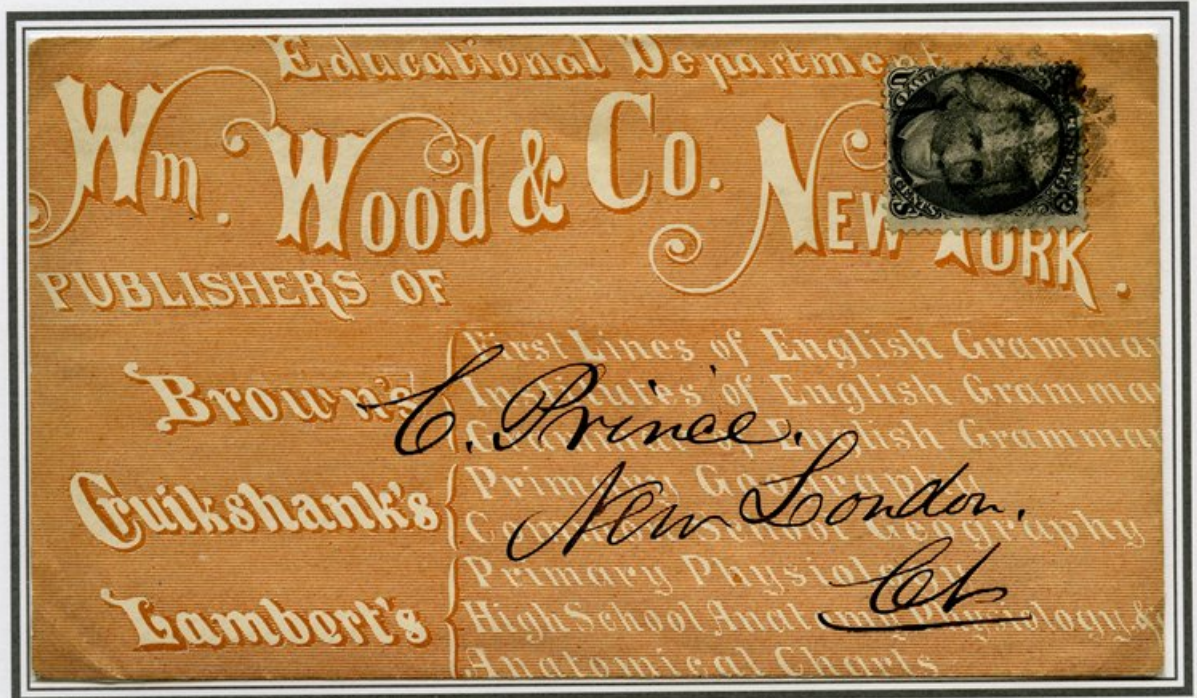 Educational Department
Wm. Wood & Co. New York.
PUBLISHERS OF
Brown's
First Lines of English Gramma
Institutes of English Gramma
of English Grammar
Cruikshank's
Primary Geography
Common School Geography
Lambert's
Primary Physiology
High School Anatomy Physiology &
Anatomical Charts
C. Prince.
New London.
Ct